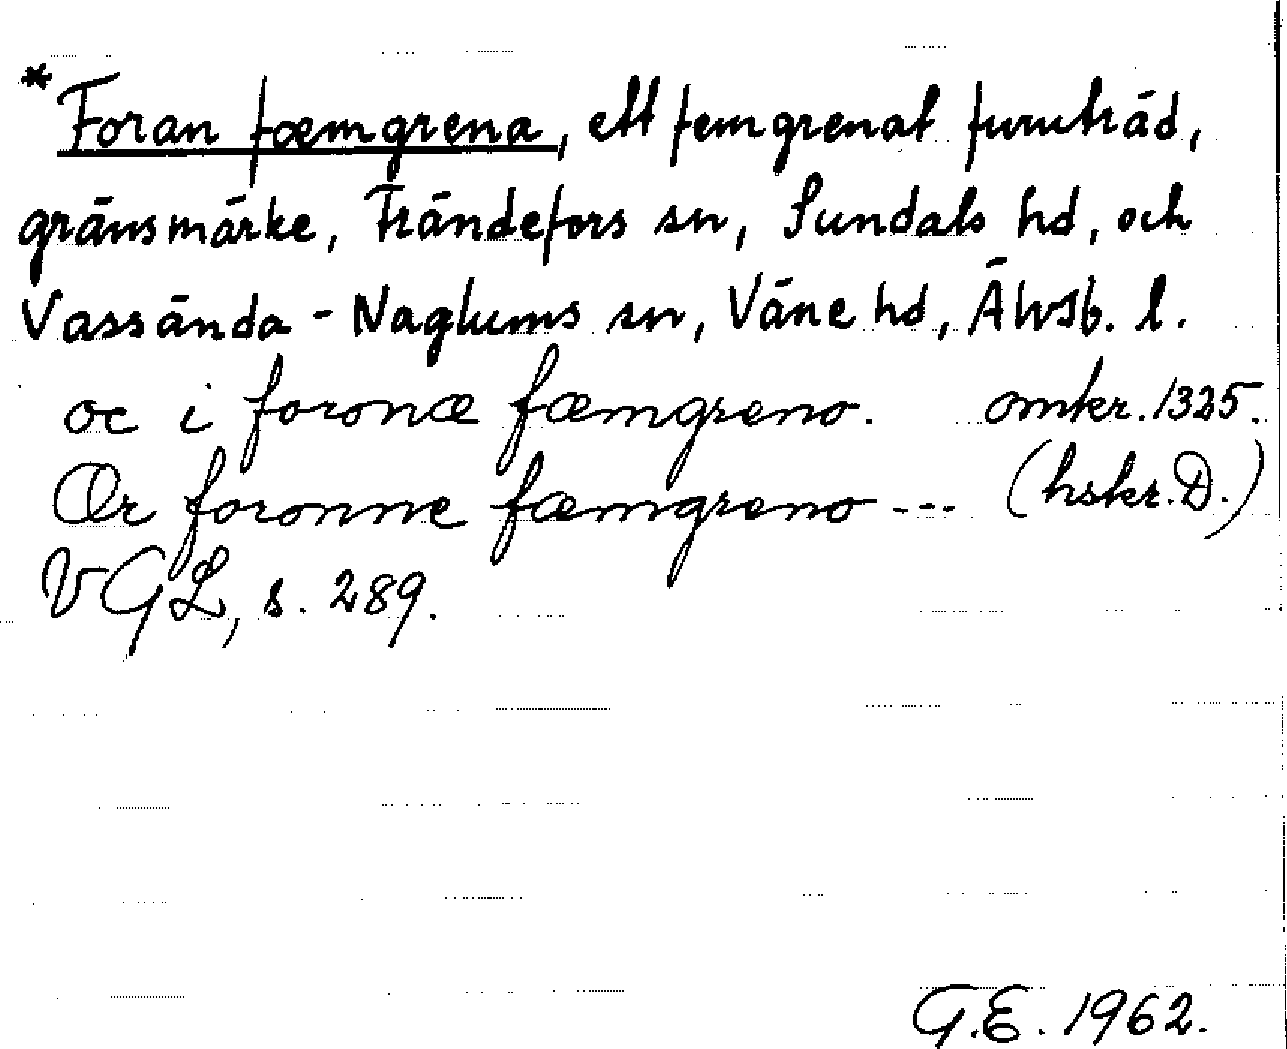 *Foran fæmgrena, ett femgrenat furuträd,
gränsmärke, Frändefors sn, Sundals hd, och
Vassända-Naglums sn, Väne hd, Älvsb. l.
oc i foronæ fæmgreno. omkr. 1325.
Ær foronne fæmgreno --- (hskr. D.)
VGL, s. 289.
G.E. 1962.